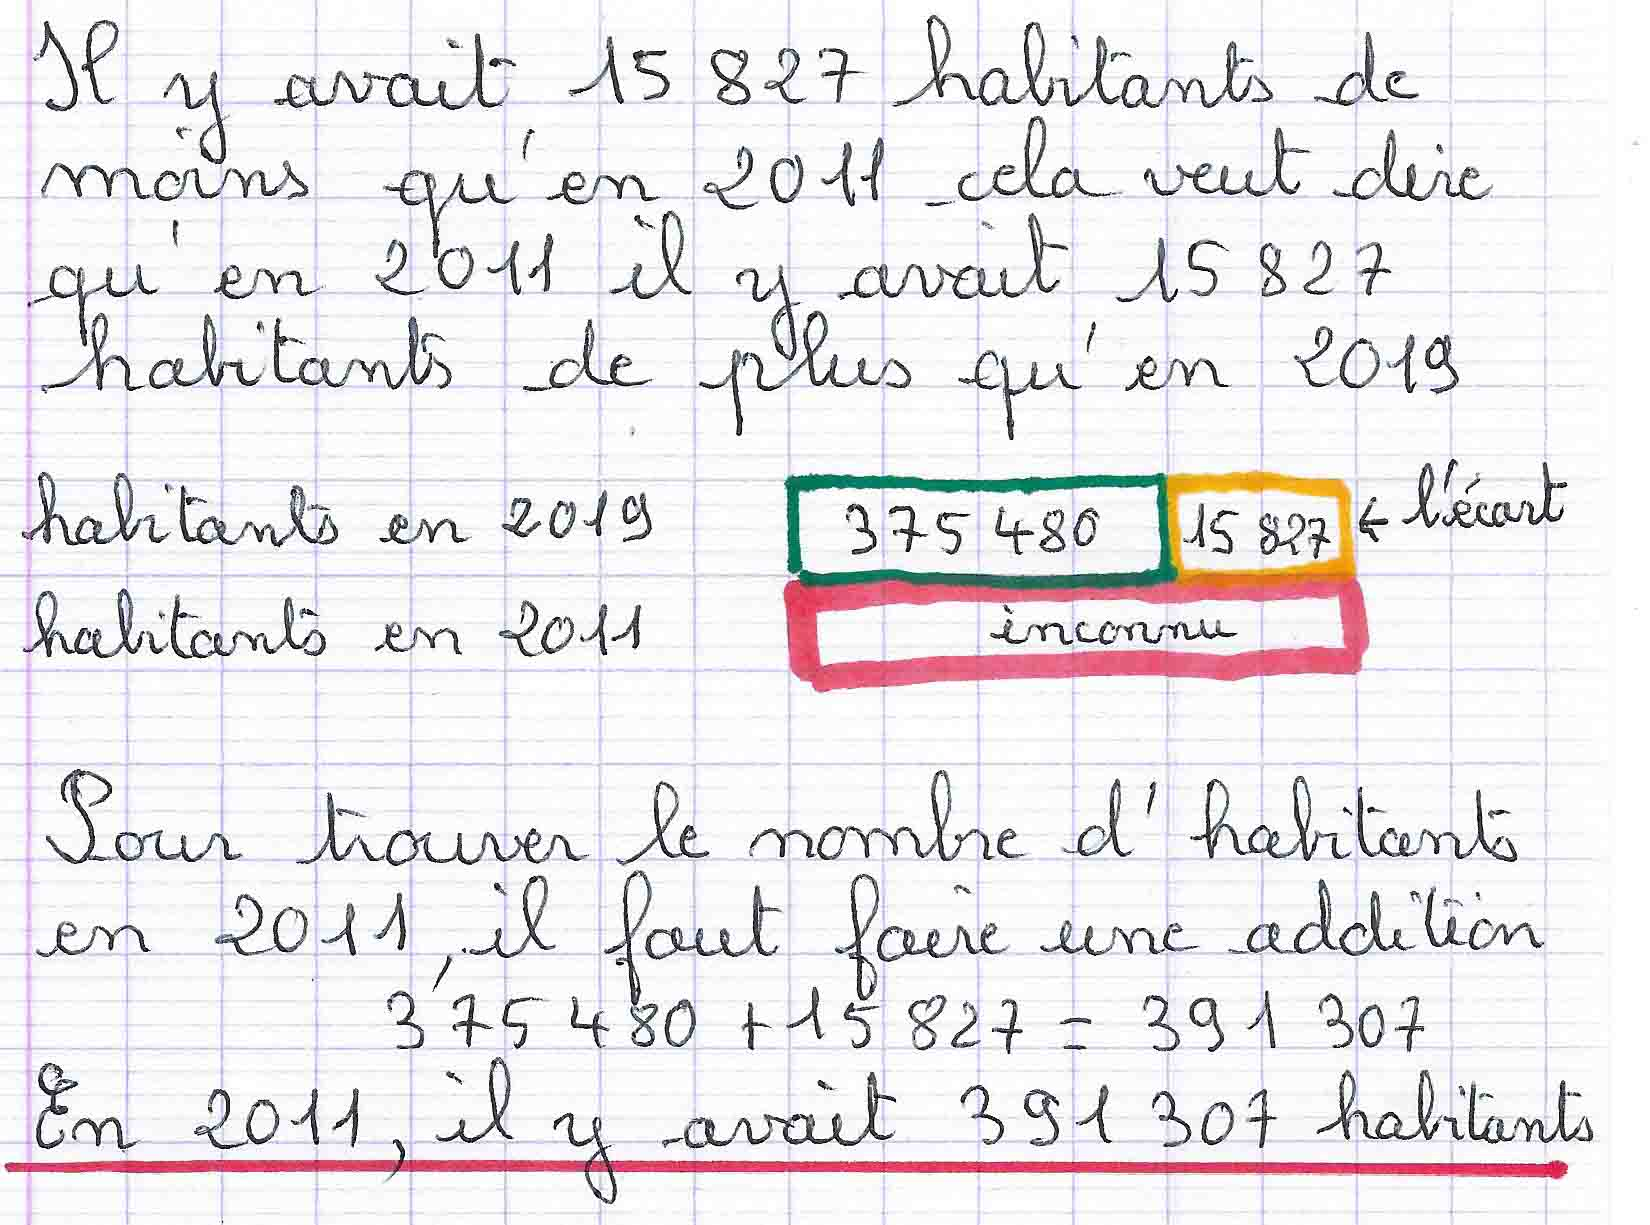 Il y avait 15 827 habitants de
moins qu'en 2011 cela veut dire
qu'en 2011 il y avait 15 827
habitants de plus qu'en 2019
habitants en 2019 375 480 15 827 ← l'écart
habitants en 2011 inconnu
Pour trouver le nombre d'habitants
en 2011, il faut faire une addition
375 480 + 15 827 = 391 307
En 2011, il y avait 391 307 habitants